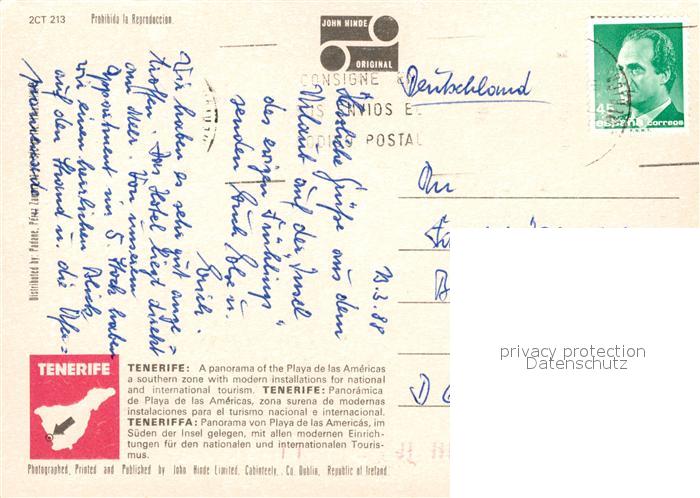 2CT 213
Prohibida la Reproduccion
JOHN HINDE
ORIGINAL
CONSIGNE E
ENVIOS E
POSTAL
45
españa correos
F.N.M.T.
Deutschland
An
D
13.3.88
Herzliche Grüße aus dem
Urlaub auf der "Insel
des ewigen Frühlings"
senden Euch Else u.
Erich.
Wir haben es sehr gut ange=
troffen. Das Hotel liegt direkt
am Meer. Von unserem
Appartment im 5. Stock haben
wir einen herrlichen Blick
auf den Strand u. die Ufer=
promenade.
Distributed by: Padone, Pérez
TENERIFE
TENERIFE: A panorama of the Playa de las Américas
a southern zone with modern installations for national
and international tourism. TENERIFE: Panorámica
de Playa de las Américas, zona surena de modernas
instalaciones para el turismo nacional e internacional.
TENERIFFA: Panorama von Playa de las Americás, im
Süden der Insel gelegen, mit allen modernen Einrich-
tungen für den nationalen und internationalen Touris-
mus.
Photographed, Printed and Published by John Hinde Limited, Cabinteely, Co. Dublin, Republic of Ireland.
privacy protection
Datenschutz